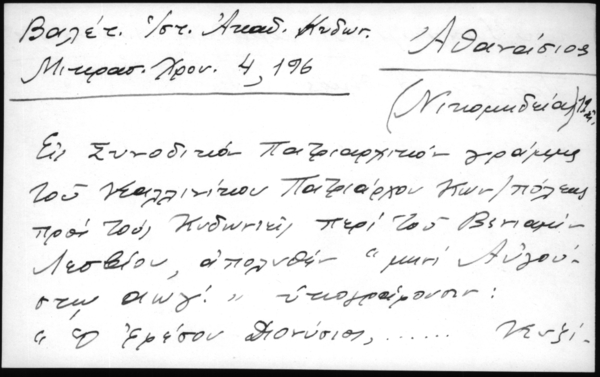 Βαλέτ. Ἱστ. Ἀκαδ. Κυδων.
Μικρασ. Χρον. 4, 196
Ἀθανάσιος
(Νικομηδείας)
Εἰς Συνοδικὸν Πατριαρχικὸν γράμμα
τοῦ Καλλινίκου Πατριάρχου Κων/πόλεως
πρὸς τοὺς Κυδωνιεῖς περὶ τοῦ Βενιαμὶν
Λεσβίου, ἀπολυθὲν "μηνὶ Αὐγού-
στῳ αωγʹ." ὑπογράφουσιν:
" Ὁ Ἐρεσοῦ Διονύσιος, ......